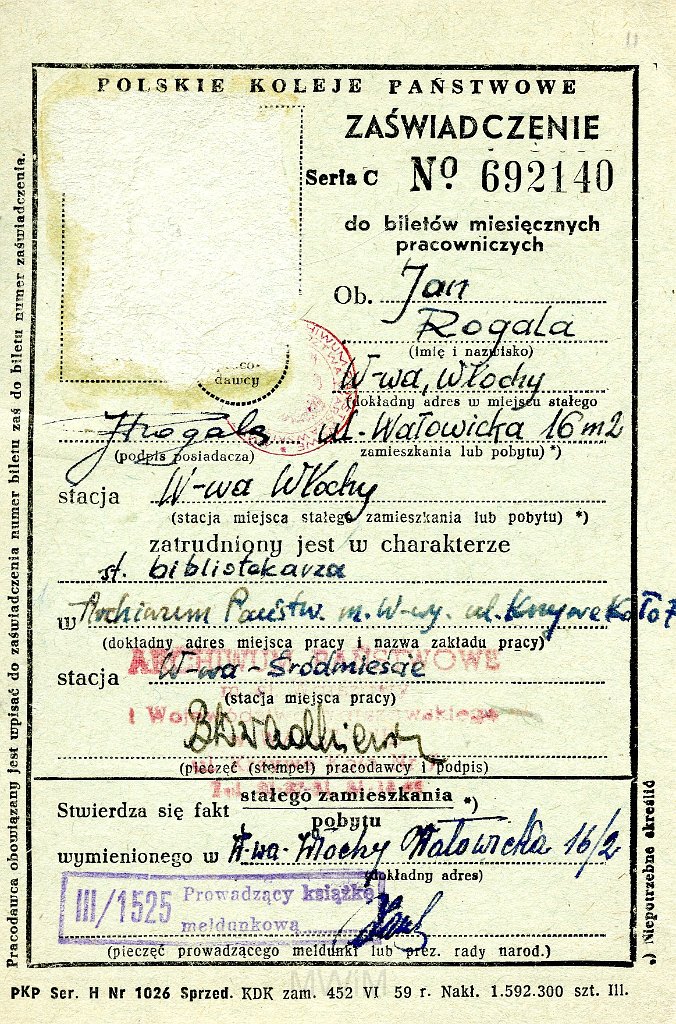 11
POLSKIE KOLEJE PAŃSTWOWE
ZAŚWIADCZENIE
Seria C Nº 692140
do biletów miesięcznych
pracowniczych
Ob. Jan
Rogala
(imię i nazwisko)
W-wa, Włochy
(dokładny adres w miejscu stałego
dawcy
JRogala ul. Wałowicka 16 m 2
(podpis posiadacza) zamieszkania lub pobytu) *)
stacja W-wa Włochy
(stacja miejsca stałego zamieszkania lub pobytu) *)
zatrudniony jest w charakterze
st. bibliotekarza
w Archiwum Państw. m. W-wy. ul. Krzywe Koło 7
(dokładny adres miejsca pracy i nazwa zakładu pracy)
ARCHIWUM PAŃSTWOWE
stacja W-wa - Śródmieście
(stacja miejsca pracy)
i Wojewód Warszawskiego
(pieczęć (stempel) pracodawcy i podpis)
Stwierdza się fakt stałego zamieszkania *)
pobytu
wymienionego w W-wa - Włochy Wałowicka 16/2
(dokładny adres)
III/1525 Prowadzący książkę
meldunkową
(pieczęć prowadzącego meldunki lub prez. rady narod.)
PKP Ser. H Nr 1026 Sprzed. KDK zam. 452 VI 59 r. Nakł. 1.592.300 szt. III.
MWM
Pracodawca obowiązany jest wpisać do zaświadczenia numer biletu zaś do biletu numer zaświadczenia.
*) Niepotrzebne skreślić